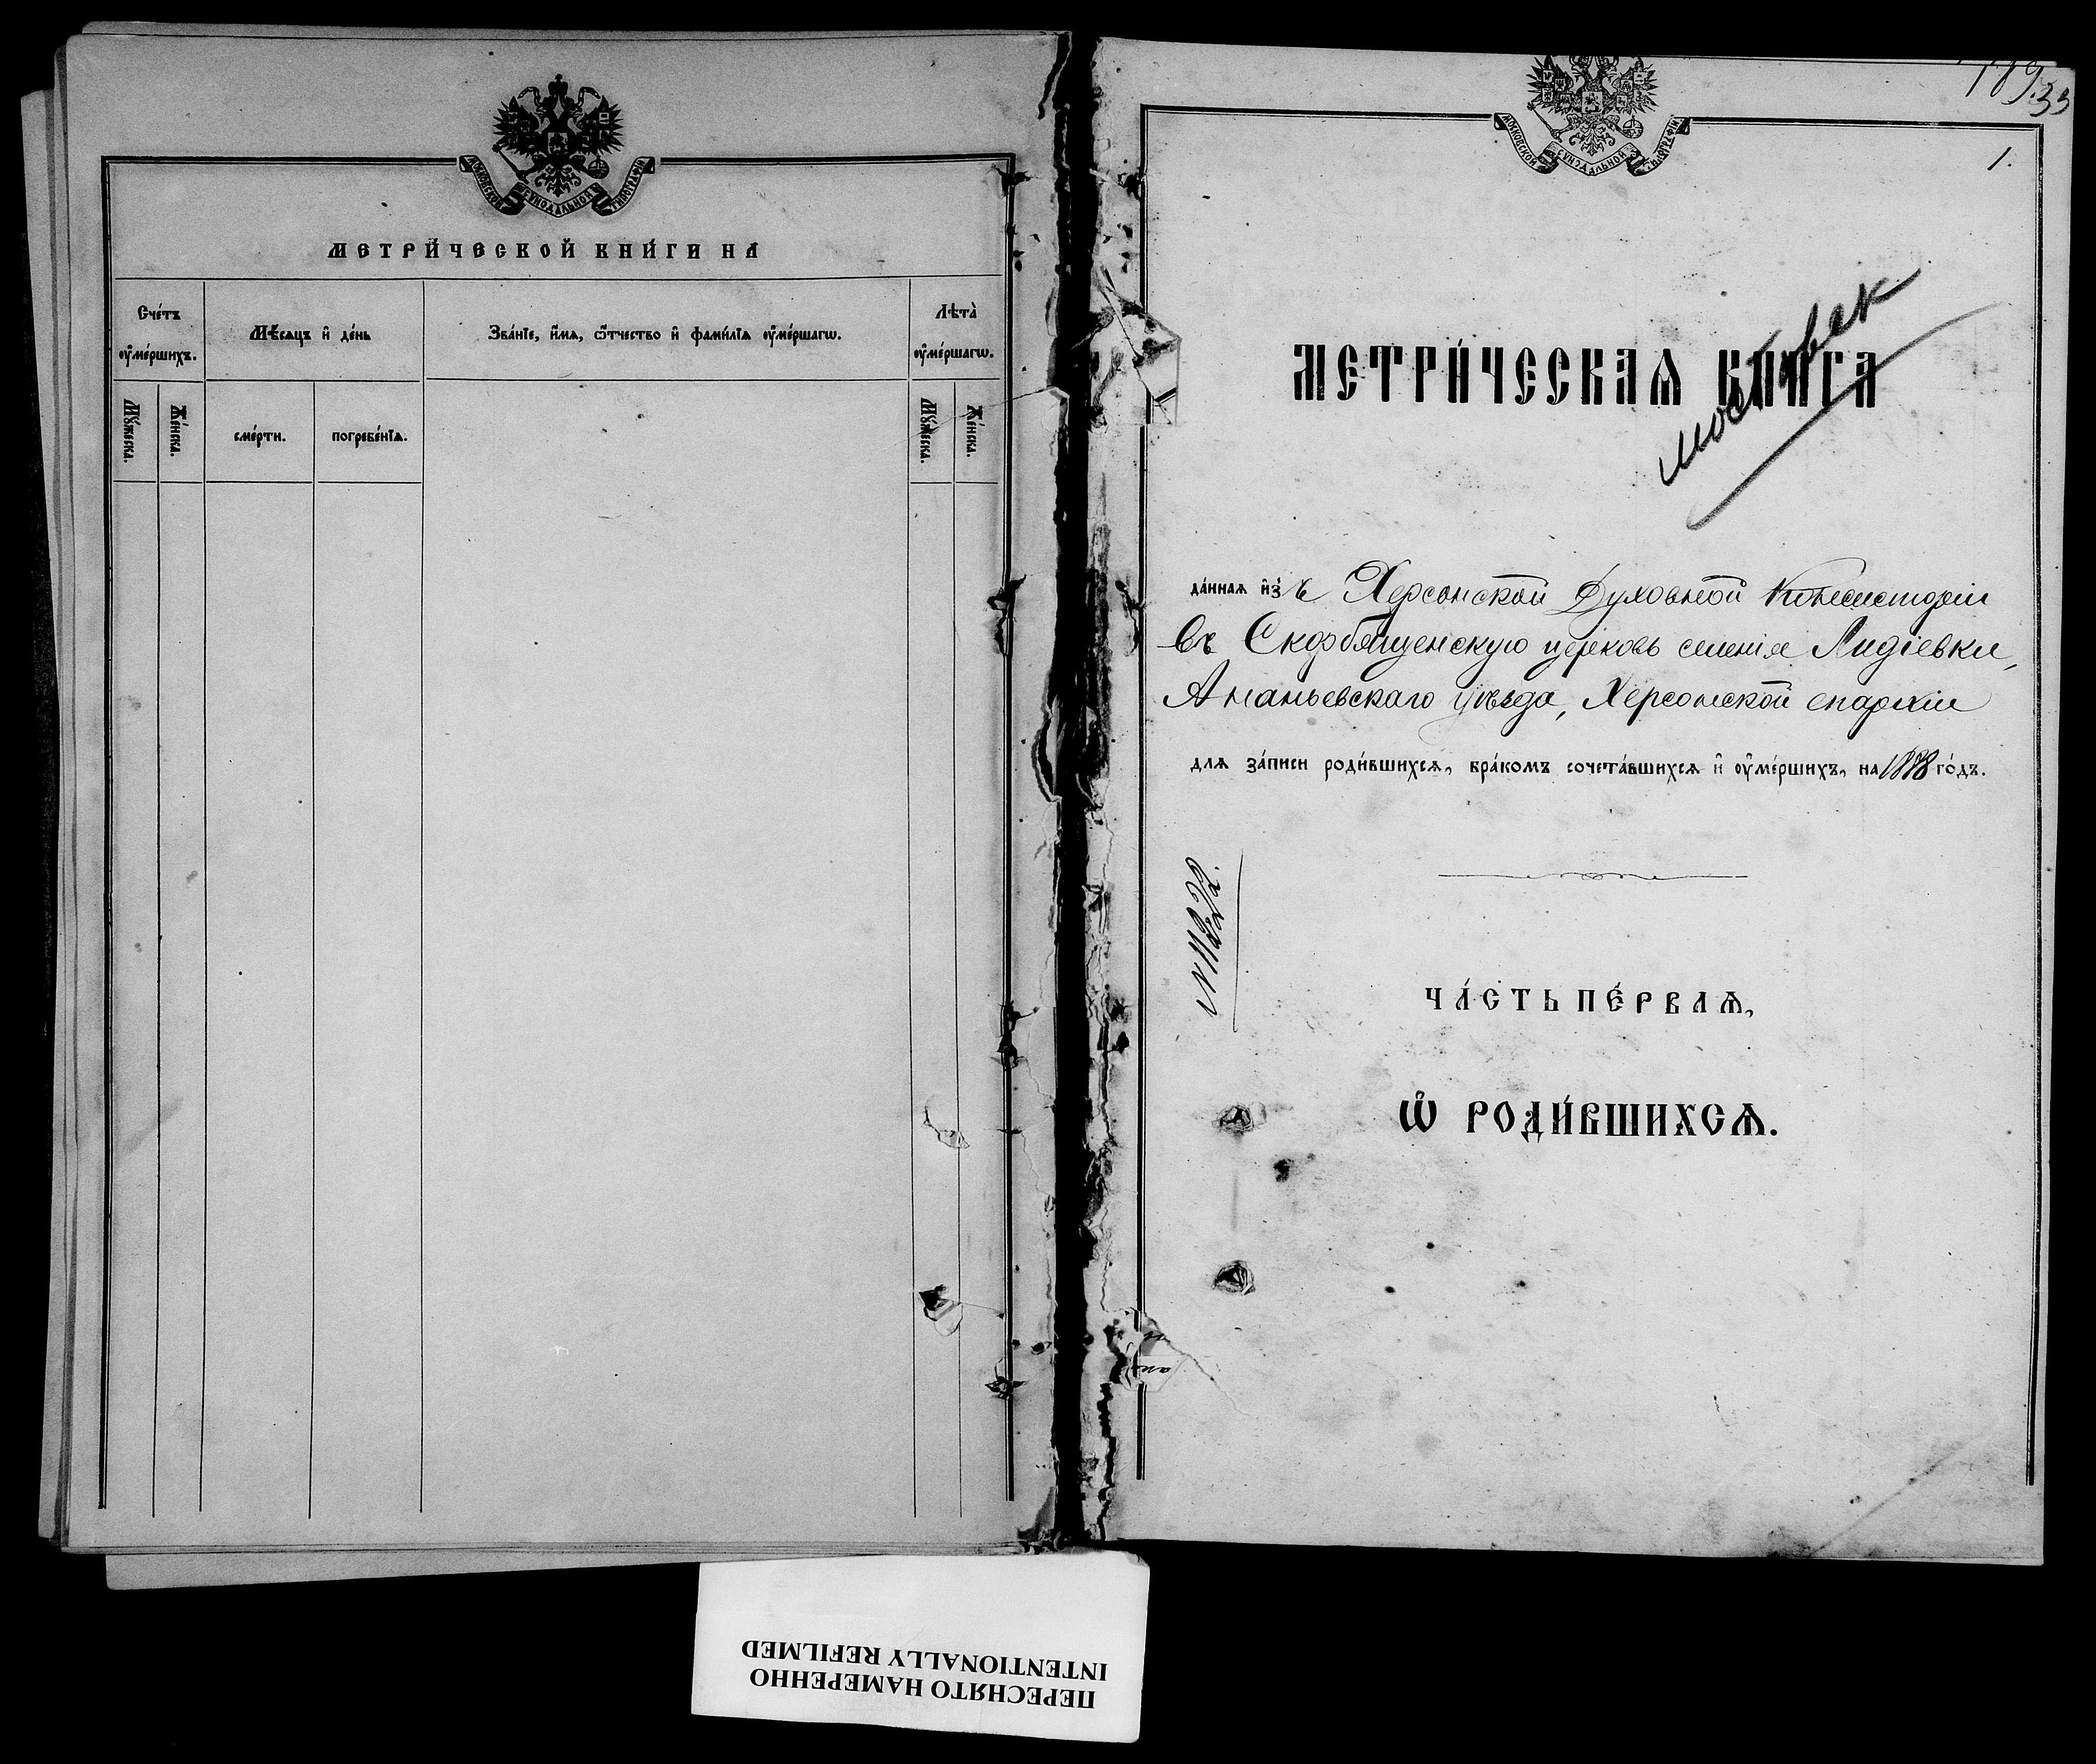 МОСКОВСКОЙ СѴНОДАЛЬНОЙ ТИПОГРАФІИ
МЕТРИ́ЧЕСКОЙ КНИ́ГИ НА
Сче́тъ ᲂу҆ме́ршихъ.
Мѣ́сяцъ и҆ де́нь
Зва́нїе, и҆́мѧ, ѻ҆́тчество и҆ фами́лїѧ ᲂу҆ме́ршагѡ.
Лѣ́та ᲂу҆ме́ршагѡ.
Мꙋ́жеска.
Же́нска.
сме́рти.
погребе́нїѧ.
Мꙋ́жеска.
Же́нска.
33
1.
МОСКОВСКОЙ СѴНОДАЛЬНОЙ ТИПОГРАФІИ
МЕТРИ́ЧЕСКАѦ КНИ́ГА
Мостовик
да́ннаѧ и҆з̾ъ Херсонской Духовной Консисторіи
Въ Скорбященскую церковь селенія Лидіевки,
Ананьевскаго уѣзда, Херсонской епархіи
длѧ за́писи роди́вшихсѧ, бра́комъ сочета́вшихсѧ и҆ ᲂу҆ме́ршихъ, на 1898 го́дъ.
ЧА́СТЬ ПЕ́РВАѦ,
Ѡ҆ РОДИ́ВШИХСѦ.
ПЕРЕСНЯТО НАМЕРЕННО
INTENTIONALLY REFILMED